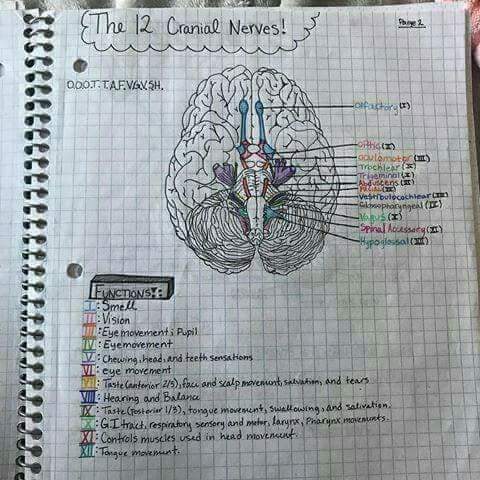 The 12 Cranial Nerves!
Page 2
O.O.O.T.T.A.F.V.G.V.S.H.
olfactory (I)
optic (II)
oculomotor (III)
Trochlear (IV)
Trigeminal (V)
Abducens (VI)
Facial (VII)
Vestibulocochlear (VIII)
Glossopharyngeal (IX)
Vagus (X)
Spinal Accessory (XI)
Hypoglossal (XII)
FUNCTIONS!:
I : Smell
II : Vision
III : Eye movement ; Pupil
IV : Eyemovement
V : Chewing, head, and teeth sensations
VI : eye movement
VII : Taste (anterior 2/3), face and scalp movement, salvation, and tears
VIII : Hearing and Balance
IX : Taste (Posterior 1/3), tongue movement, Swallowing, and salivation.
X : G.I tract, respiratory sensory and motor, larynx, Pharynx movements.
XI : Controls muscles used in head movement.
XII : Tongue movement.